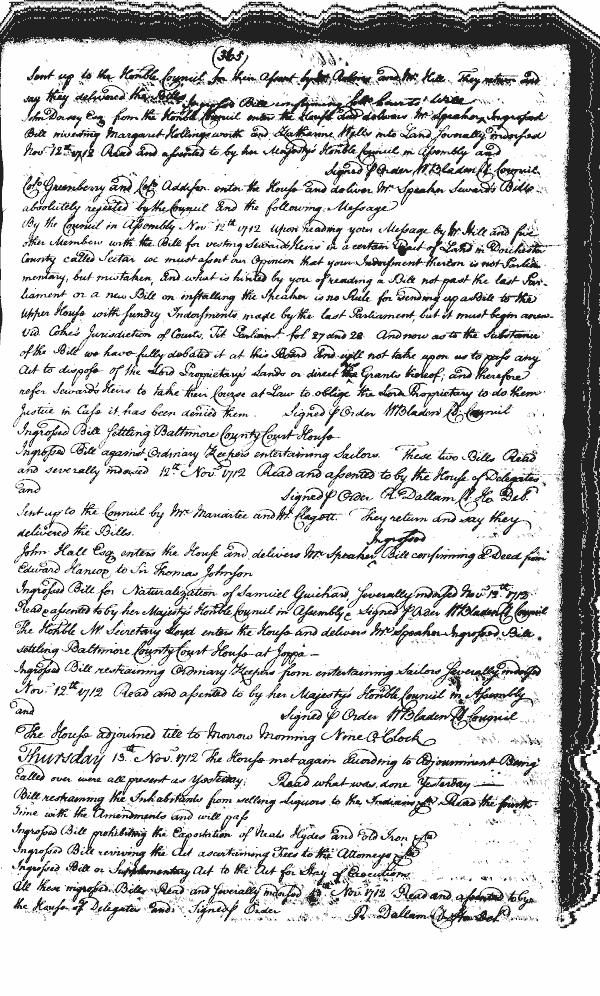 (365)
Sent up to the Honble Council for their Assent by Mr and Mr Hill. They return and
say they delivered the Bills
Ingrossed Bill confirming last
John Dorsey Esq from the Honble Council enter the House and delivers Mr Speaker Ingrossed
Bill investing Margaret Hollingsworth and Katharine Wells into Land severally indorsed
Nov 12th 1712 Read and assented to by her Majestys Honble Council in Assembly and
Signed p Order W Bladen Cl Council
Colo Greenberry and Colo Addison enter the House and deliver Mr Speaker Sewards Bill
absolutely rejected by the Council and the following Message
By the Council in Assembly Nov 12th 1712 Upon reading your Message by Mr Hill and five
other Members with the Bill for vesting Sewards Heirs in a certain Part of Land in Dorchester
County called Sectar we must assert our Opinion that your Indorsment thereon is not Parlia-
mentary, but mistaken, and what is hinted by you of reading a Bill not past the last Par-
liament or a new Bill on installing the Speaker is no Rule for sending up a Bill to the
Upper House with sundry Indorsments made by the last Parliament, but it must begin anew
Vid Coke's Jurisdiction of Courts, Tit Parliamt fol. 27 and 28. And now as to the Substance
of the Bill we have fully debated it at this Board and will not take upon us to pass any
Act to dispose of the Lord Proprietary's Lands or direct the Grants thereof, and therefore
refer Sewards Heirs to take their Course at Law to oblige the Lord Proprietary to do them
Justice in Case it has been denied them. Signed p Order W Bladen Cl Council
Ingrossed Bill settling Baltimore County Court House
Ingrossed Bill against Ordinary Keepers entertaining Sailors. These two Bills Read
and severally indorsed 12th Novr 1712 Read and assented to by the House of Delegates
and Signed p Order R Dallam Cl Ho. Del.
Sent up to the Council by Mr Macartee and Mr Clagett. They return and say they
delivered the Bills.
Ingrossed
John Hall Esq enters the House and delivers Mr Speaker Bill confirming a Deed from
Edward Hanson to Sir Thomas Johnson
Ingrossed Bill for Naturalization of Samuel Guichard, severally indorsed Nov 12th 1712
Read & assented to by her Majestys Honble Council in Assembly Signed p Order W Bladen Cl Council
The Honble Mr Secretary Lloyd enters the House and delivers Mr Speaker Ingrossed Bill
settling Baltimore County Court House at Joppa
Ingrossed Bill restraining Ordinary Keepers from entertaining Sailors severally indorsed
Novr 12th 1712 Read and assented to by her Majesty's Honble Council in Assembly
and Signed p Order W Bladen Cl Council
The House adjourned till to Morrow Morning Nine O Clock
Thursday 13th Novr 1712 The House met again According to Adjournment Being
called over were all present as Yesterday. Read what was done Yesterday
Bill restraining the Inhabitants from selling Liquors to the Indians &c Read the fourth
time with the Amendments and will pass
Ingrossed Bill prohibiting the Exportation of Neats Hydes and old Iron &c
Ingrossed Bill reviving the Act ascertaining Fees to the Attorneys &c
Ingrossed Bill or Supplementary Act to the Act for Stay of Executions
All these ingrossed Bills Read and severally indorsed 13th Novr 1712 Read and assented to by
the House of Delegates and Signed p Order R Dallam Cl Ho Del